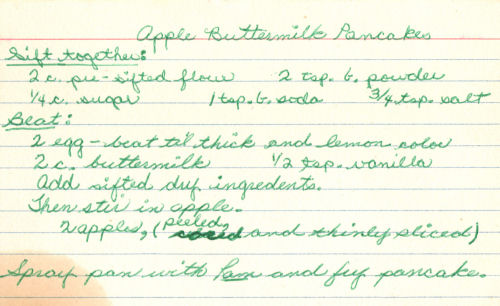 Apple Buttermilk Pancakes
Sift together:
2 c. pre-sifted flour 2 tsp. b. powder
1/4 c. sugar 1 tsp. b. soda 3/4 tsp. salt
Beat:
2 egg - beat til thick and lemon color
2 c. buttermilk 1/2 tsp. vanilla
Add sifted dry ingredents.
Then stir in apple.
2 apples, (peeled, cored and thinly sliced)
Spray pan with Pam and fry pancake.